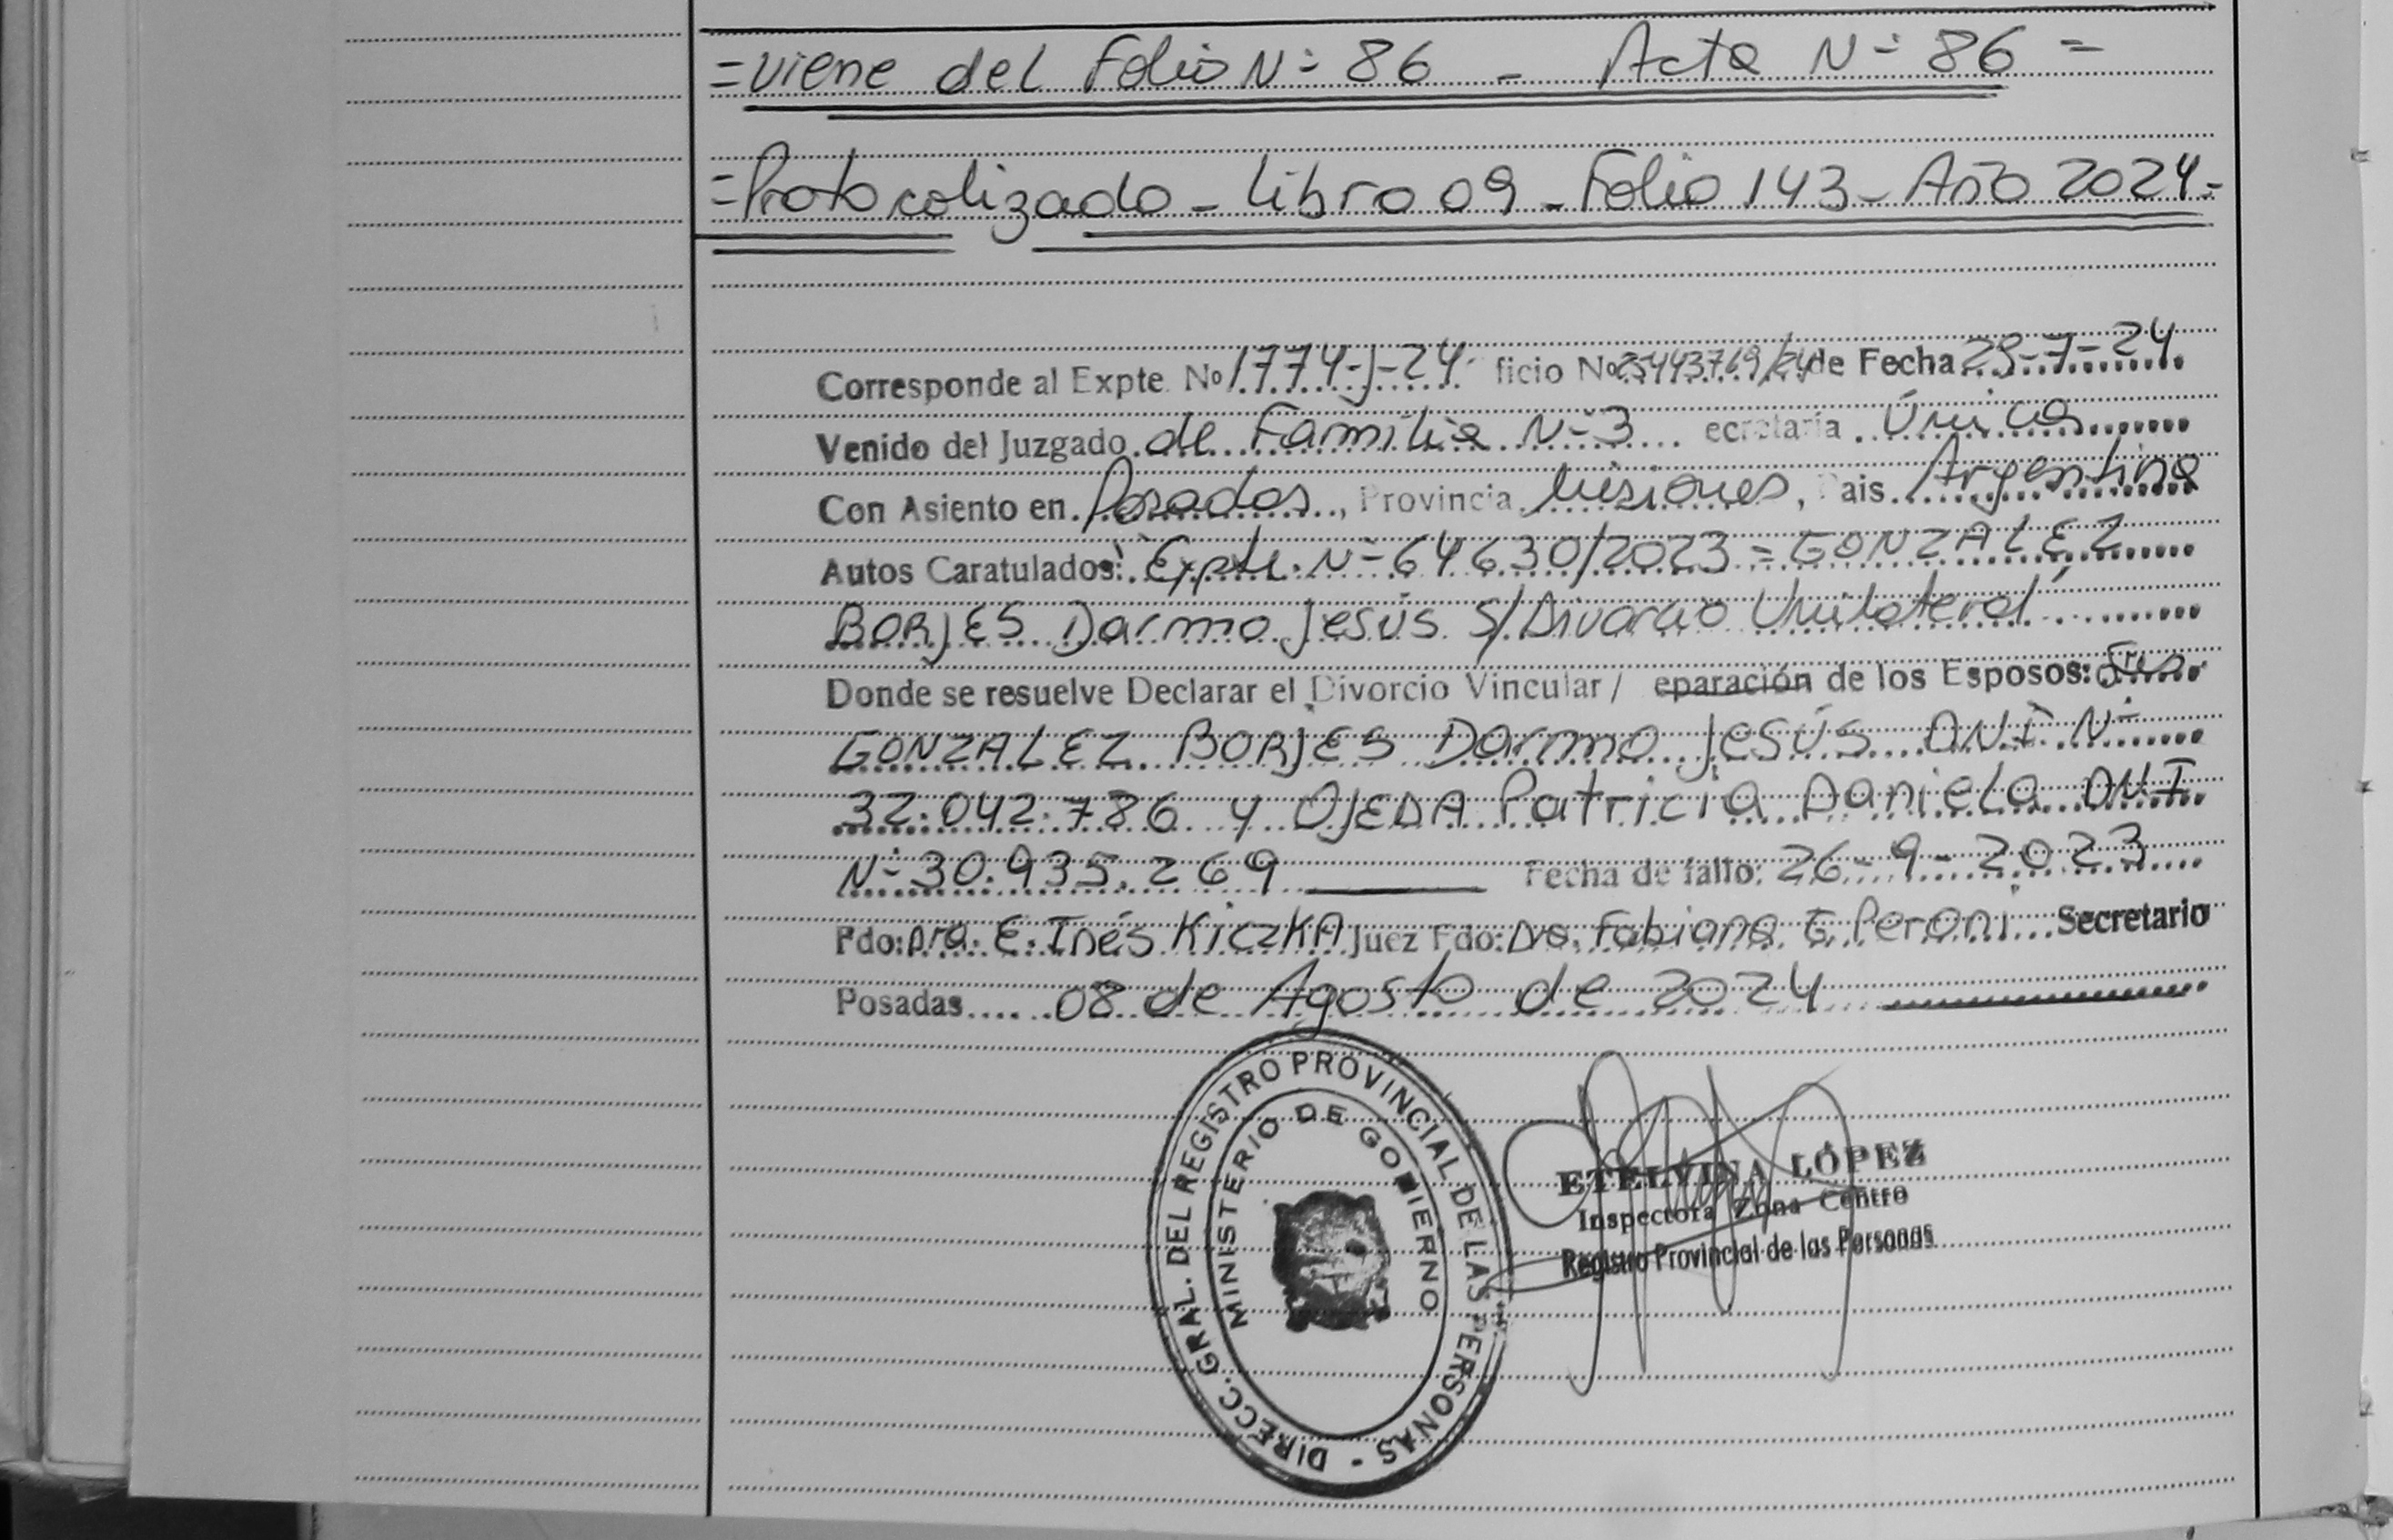 =Viene del Folio Nº 86 - Acta Nº 86 =
=Protocolizado - Libro 09 - Folio 143 - Año 2024 =
Corresponde al Expte. Nº 1774-J-24 ficio Nº /24 de Fecha 29-7-24
Venido del Juzgado de Familia Nº 3 ecretaría Única
Con Asiento en Posadas, Provincia Misiones, Pais Argentina
Autos Caratulados: Expte. Nº 64630/2023 = GONZALEZ
BORJES Darmo Jesús S/Divorcio Unilateral
Donde se resuelve Declarar el Divorcio Vincular / eparación de los Esposos: Sres.
GONZALEZ BORJES Darmo Jesús DNI Nº
32.042.786 y OJEDA Patricia Daniela DNI
Nº 30.935.269 Fecha de fallo: 26-9-2023
Fdo: Dra. E. Inés KiczKA Juez Fdo: Dra. Fabiana E. Peroni Secretario
Posadas 08 de Agosto de 2024
DIRECC. GRAL. DEL REGISTRO PROVINCIAL DE LAS PERSONAS -
MINISTERIO DE GOBIERNO
ETELVINA LÓPEZ
Inspectora Zona Centro
Registro Provincial de las Personas